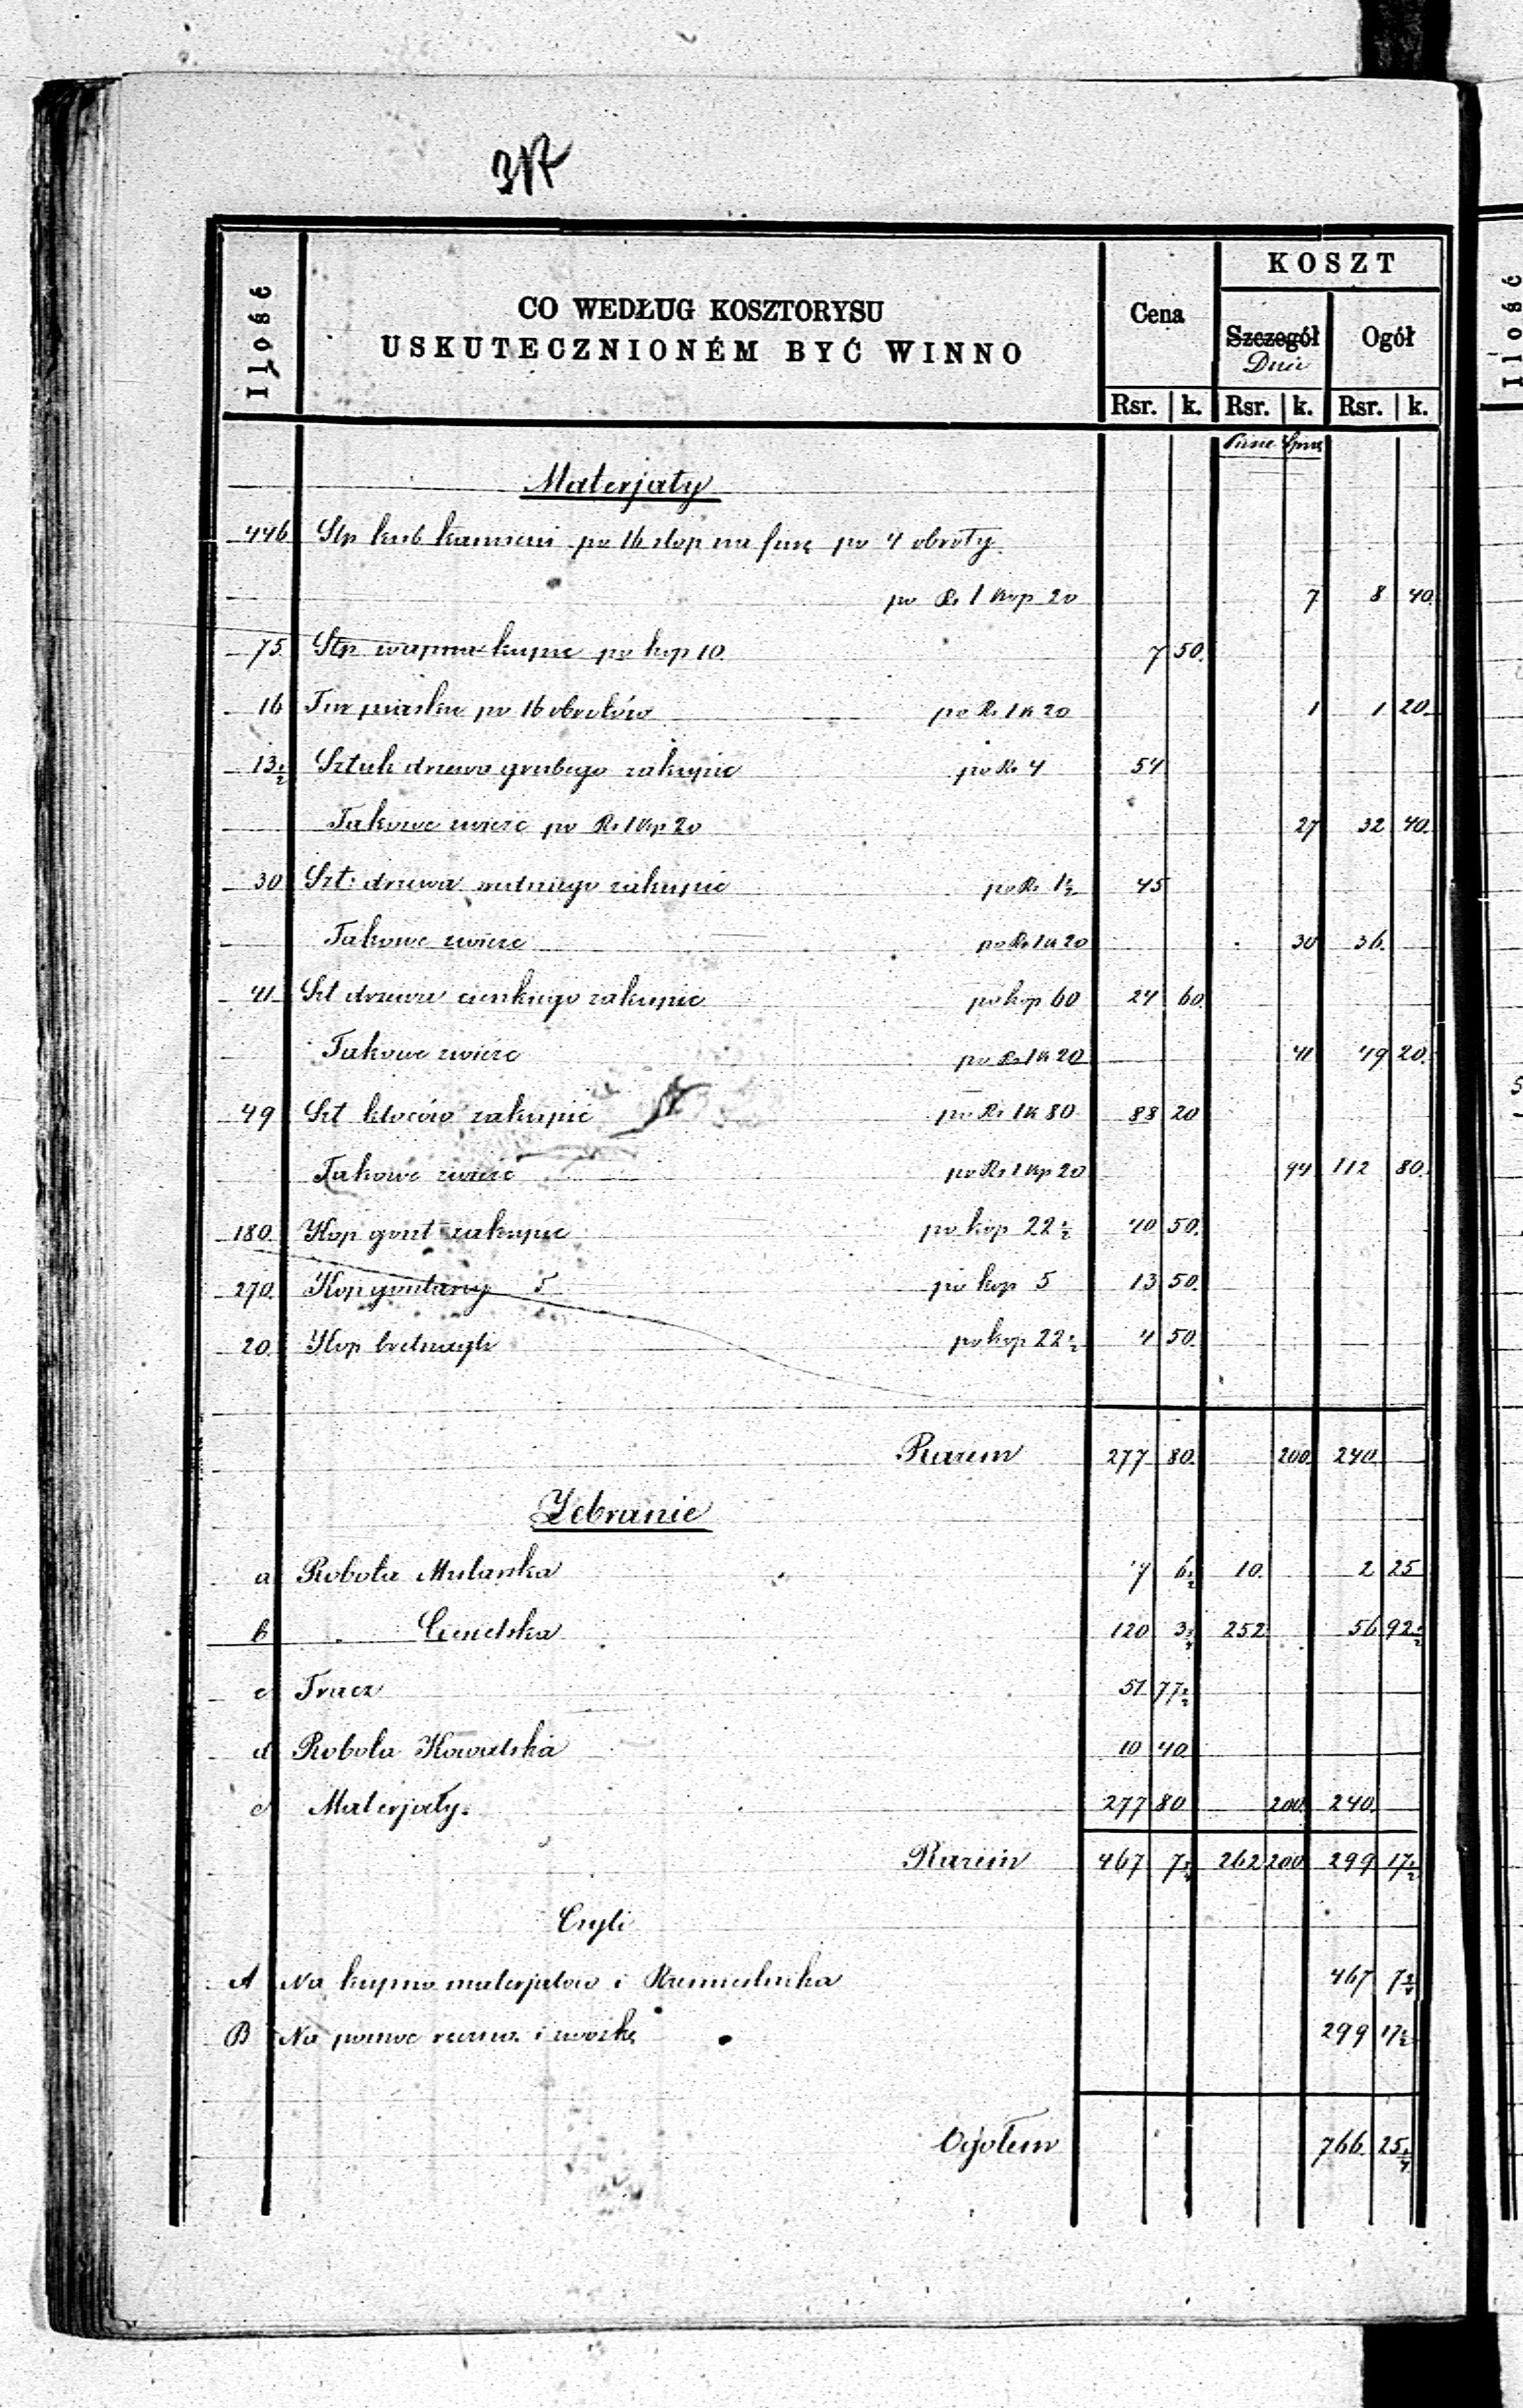 317
Ilość | CO WEDŁUG KOSZTORYSU USKUTECZNIONÉM BYĆ WINNO | Cena | KOSZT
Szczegół | Ogół
Dnie
Rsr. | k. | Rsr. | k. | Rsr. | k.
Piesze
Materjały
446 Stp kub kamieni po 16 stop na furę po 4 obroty
po Rs 1 Kop 20 7 8 40.
75. Stp wapna kupić po kop 10. 7 50.
16 Fur piasku po 16 obrotów po Rs 1 k 20 1 1 20.
13 1/2 Sztuk drzewa grubego zakupić po Rs 4 54
Takowe zwieść po Rs 1 Kop 20 27 32 40.
30 Szt: drzewa średniego zakupić po Rs 1 1/2 45
Takowe zwieść po Rs 1 k 20 30 36.
41 Szt drzewa cienkiego zakupić po kop 60 24 60.
Takowe zwieść po Rs 1 k 20 41 49 20.
49 Szt kloców zakupić po Rs 1 k 80 88 20
Takowe zwieść po Rs 1 kp 20 94 112 80.
180. Kop gont zakupić po kop 22 1/2 40 50.
270. Kop gontary 5 po kop 5 13 50.
20. Kop bretnayli po kop 22 1/2 4 50.
Razem 277 80. 200. 240.
Zebranie
a Robota Mularska 7 6 1/2 10. 2 25
b " Cieselska 120 3 3/4 252 56 92 1/2
c Tracz 51 77 1/2
d Robota Kowalska 10 40
e Materjały. 277 80 200. 240.
Razem 467 7 3/4 262 200 299 17 1/2
Czyli
A Na kupno materjałów i Rzemieślnika 467 7 3/4
B Na pomoc ręczną i zwózkę 299 17 1/2
Ogółem 766. 25 1/4
Ilość